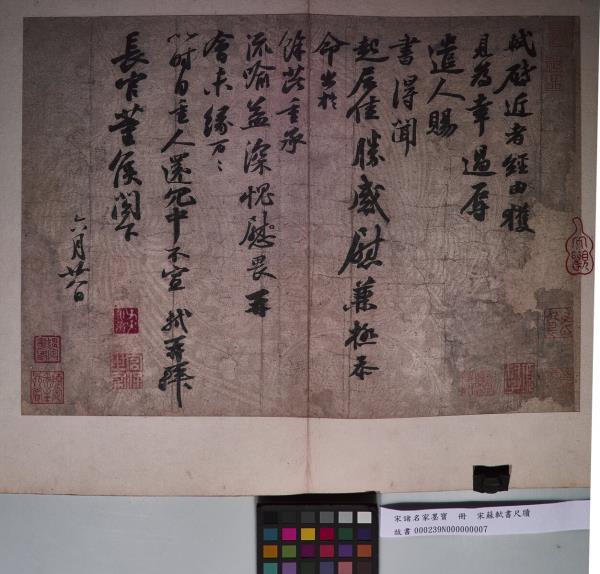 軾啓近者經由獲
見為幸過辱
遣人賜
書得聞
起居佳勝感慰兼極忝
命出於
餘芘重承
流喻益深愧慰畏再
會未緣万〻
以時自重人還冗中不宣 軾再拜
長官董侯閤下
六月廿八日
宋諸名家墨寶 冊 宋蘇軾書尺牘
故書000239N000000007